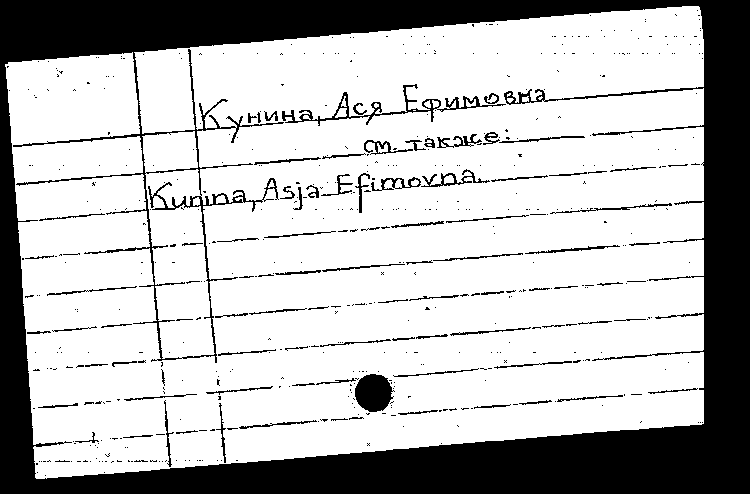 Кунина, Ася Ефимовна
см. также:
Kunina, Asja Efimovna.